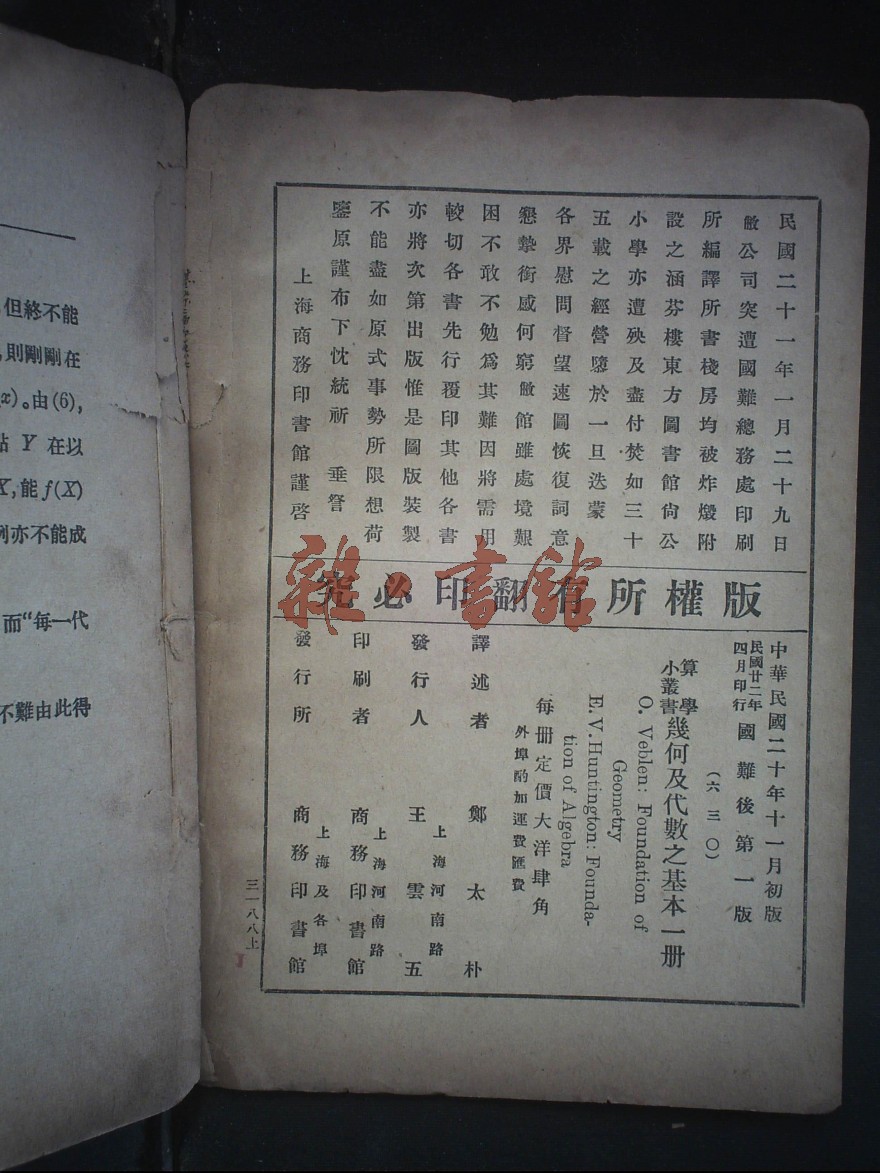 但終不能
則剛剛在
x)。由(6),
Y 在以
X,能f(X)
亦不能成
而“每一代
不難由此得
民國二十一年一月二十九日
敝公司突遭國難總務處印刷
所編譯所書棧房均被炸燬附
設之涵芬樓東方圖書館尙公
小學亦遭殃及盡付焚如三十
五載之經營隳於一旦迭蒙
各界慰問督望速圖恢復詞意
懇摯銜感何窮敝館雖處境艱
困不敢不勉爲其難因將需用
較切各書先行覆印其他各書
亦將次第出版惟是圖版裝製
不能盡如原式事勢所限想荷
鑒原謹布下忱統祈 垂詧
上海商務印書館謹啓
版權所有翻印必究
雜書館
中華民國二十年十一月初版
民國廿二年四月印行 國難後第一版
(六三〇)
算學小叢書 幾何及代數之基本一册
O. Veblen: Foundation of
Geometry
E.V.Huntington: Founda-
tion of Algebra
每册定價大洋肆角
外埠酌加運費匯費
譯述者 鄭太朴
發行人 王雲五
上海河南路
印刷者 商務印書館
上海河南路
發行所 商務印書館
上海及各埠
三一八八上